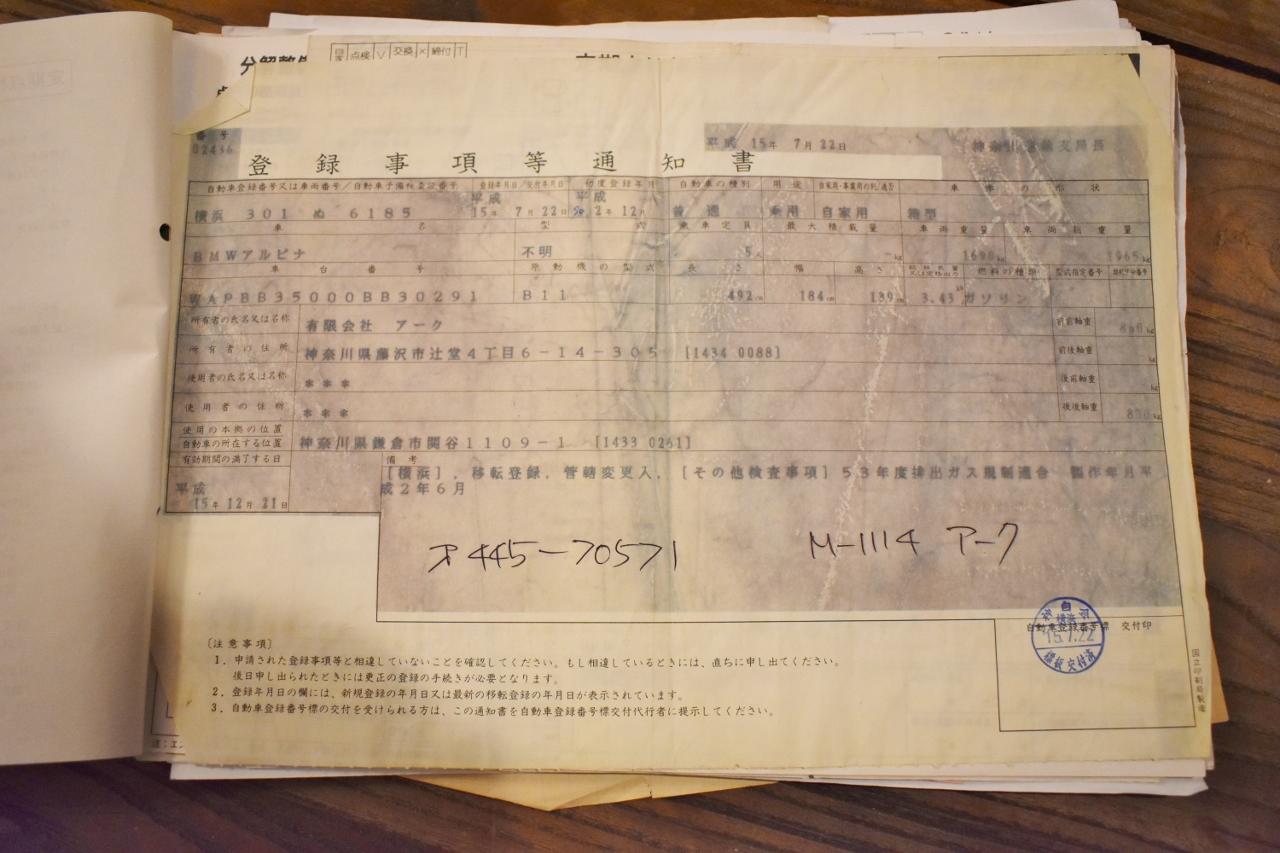 分解整
点検 V 交換 × 締付 T
番号
02436
平成 15年 7月22日
神奈川運輸支局長
登録事項等通知書
自動車登録番号又は車両番号/自動車予備検査証番号 登録年月日/交付年月日 初度登録年月 自動車の種別 用途 自家用・事業用の別/適否 車体の形状
平成 平成
横浜 301 ぬ 6185 15年 7月22日 2年12月 普通 乗用 自家用 箱型
車名 型式 乗車定員 最大積載量 車両重量 車両総重量
BMWアルピナ 不明 5人 kg 1690kg 1965kg
車台番号 原動機の型式 長さ 幅 高さ 総排気量又は定格出力 燃料の種類 型式指定番号 類別区分番号
WAPBB35000BB30291 B11 492cm 184cm 139cm 3.43 ガソリン
所有者の氏名又は名称 有限会社 アーク 前前軸重 kg
所有者の住所 神奈川県藤沢市辻堂4丁目6-14-305 [1434 0088] 前後軸重 kg
使用者の氏名又は名称 *** 後前軸重 kg
使用者の住所 *** 後後軸重 kg
使用の本拠の位置
自動車の所在する位置 神奈川県鎌倉市関谷1109-1 [1433 0261]
有効期間の満了する日 備考
[横浜],移転登録,管轄変更入,[その他検査事項]53年度排出ガス規制適合 製作年月平
平成 成2年6月
15年12月21日
445-70571 M-1114 アーク
自動車登録番号標 交付印
横浜
15.7.22
標板交付済
[注意事項]
1.申請された登録事項等と相違していないことを確認してください。もし相違しているときには、直ちに申し出てください。
後日申し出られたときには更正の登録の手続きが必要となります。
2.登録年月日の欄には、新規登録の年月日又は最新の移転登録の年月日が表示されています。
3.自動車登録番号標の交付を受けられる方は、この通知書を自動車登録番号標交付代行者に提示してください。
国立印刷局製造